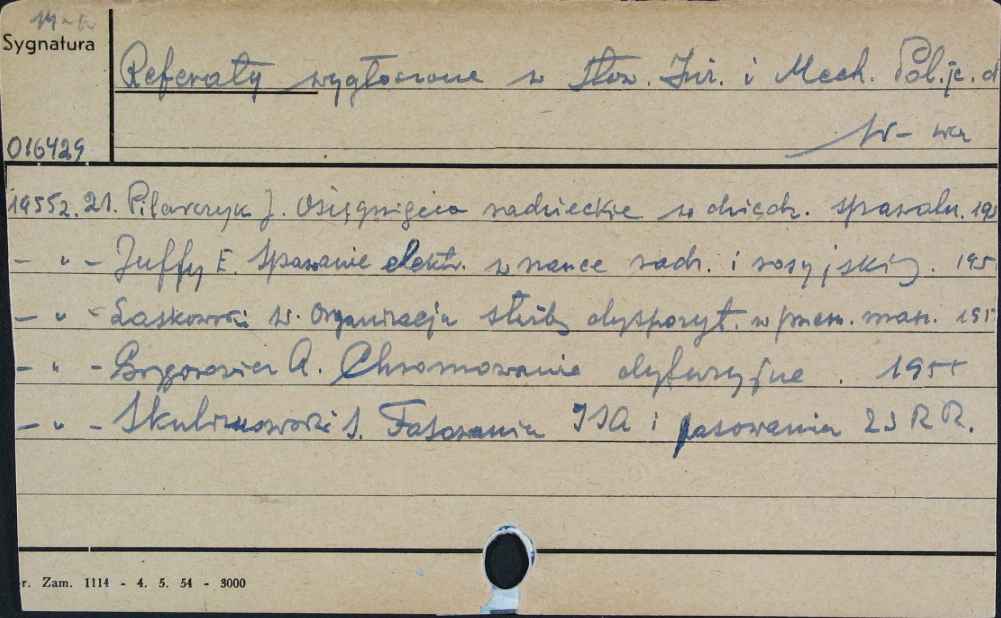 Sygnatura
016429
Referaty wygłoszone w Stow. Inż. i Mech. Pol.
W-wa
1955 z. 21. Pilarczyk J. Osiągnięcia radzieckie w dziedz. spawaln. 195
- " - Juffy E. Spawanie elektr. w nauce radz. i rosyjskiej. 195
- " - Laskowski W. Organizacja służby dyspozyt. w przem. masz. 195
- " - A. Chromowanie dyfuzyjne. 1955
- " - Skulimowski S. Pasowania ISA i pasowania ZSRR.
r. Zam. 1114 - 4. 5. 54 - 3000